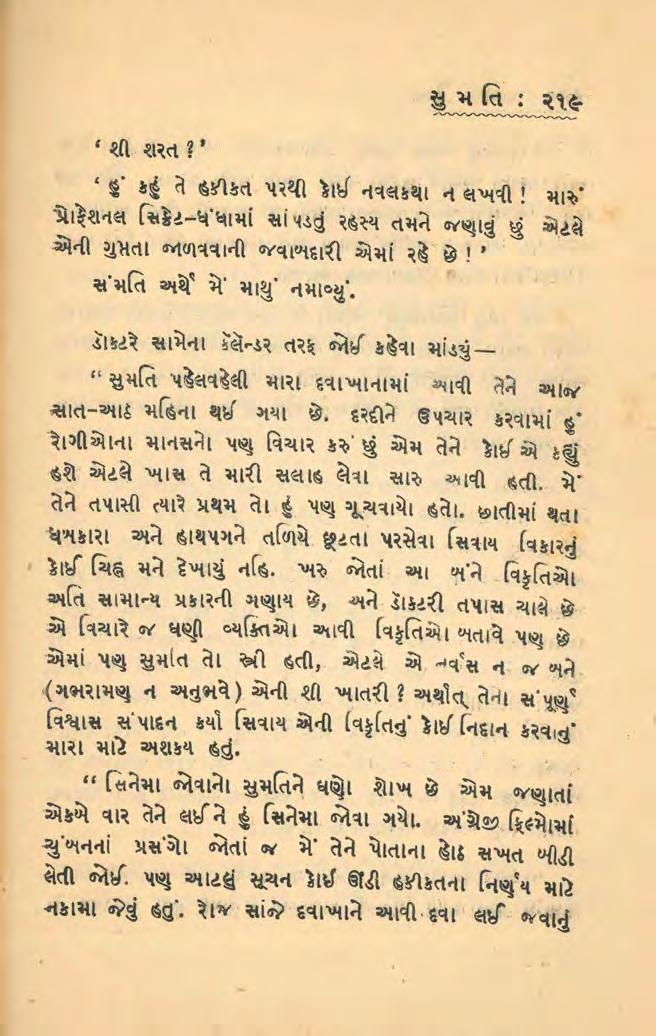 સુ મ તિ : ૨૧૯
‘ શી શરત ? ’
‘ હું કહું તે હકીકત પરથી કોઈ નવલકથા ન લખવી ! મારું
પ્રોફેશનલ સિક્રેટ-ધંધામાં સાંપડતું રહસ્ય તમને જણાવું છું એટલે
એની ગુપ્તતા જાળવવાની જવાબદારી એમાં રહે છે ! ’
સંમતિ અર્થે મેં માથું નમાવ્યું.
ડૉકટરે સામેના કૅલેન્ડર તરફ જોઈ કહેવા માંડયું—
“ સુમતિ પહેલવહેલી મારા દવાખાનામાં આવી તેને આજ
સાત-આઠ મહિના થઈ ગયા છે. દરદીને ઉપચાર કરવામાં હું
રોગીઓના માનસનો પણ વિચાર કરું છું એમ તેને કોઈ એ કહ્યું
હશે એટલે ખાસ તે મારી સલાહ લેવા સારુ આવી હતી. મેં
તેને તપાસી ત્યારે પ્રથમ તો હું પણ ગૂચવાયો હતો. છાતીમાં થતા
ધબકારા અને હાથપગને તળિયે છૂટતા પરસેવા સિવાય વિકારનું
કોઈ ચિહ્ન મને દેખાયું નહિ. ખરુ જોતાં આ બંને વિકૃતિઓ
અતિ સામાન્ય પ્રકારની ગણાય છે, અને ડૉકટરી તપાસ ચાલે છે
એ વિચારે જ ઘણી વ્યક્તિઓ આવી વિકૃતિઓ બતાવે પણ છે
એમાં પણ સુમતિ તો સ્ત્રી હતી, એટલે એ નર્વસ ન જ બને
(ગભરામણ ન અનુભવે) એની શી ખાતરી ? અર્થાત્ તેના સંપૂર્ણ
વિશ્વાસ સંપાદન કર્યા સિવાય એની વિકૃતિનું કોઈ નિદાન કરવાનું
મારા માટે અશકય હતું.
“ સિનેમા જોવાનો સુમતિને ઘણો શોખ છે એમ જણાતાં
એકબે વાર તેને લઈને હું સિનેમા જોવા ગયો. અંગ્રેજી ફિલ્મોમાં
ચુંબનનાં પ્રસંગો જોતાં જ મેં તેને પોતાના હોઠ સખત બીડી
લેતી જોઈ. પણ આટલું સૂચન કોઈ ઊંડી હકીકતના નિર્ણય માટે
નકામા જેવું હતું. રોજ સાંજે દવાખાને આવી દવા લઈ જવાનું